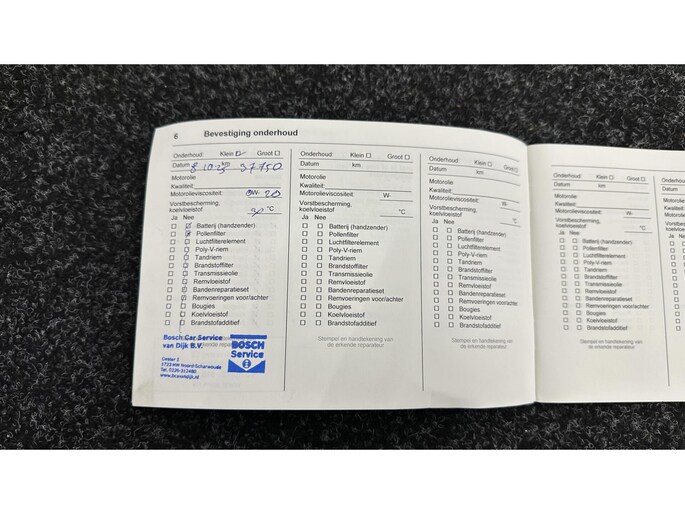 6 Bevestiging onderhoud
Onderhoud: Klein ☑ Groot ☐
Datum 8-10-25 km 37750
Motorolie
Kwaliteit:
Motorolieviscositeit: 0W- 20
Vorstbescherming,
koelvloeistof °C
Ja Nee
Batterij (handzender)
Pollenfilter
Luchtfilterelement
Poly-V-riem
Tandriem
Brandstoffilter
Transmissieolie
Remvloeistof
Bandenreparatieset
Remvoeringen voor/achter
Bougies
Koelvloeistof
Brandstofadditief
Bosch Car Service
van Dijk B.V.
BOSCH
Service
1723 MW Noord-Scharwoude
Tel. 0226-312480
www.bcsvandijk.nl
Onderhoud: Klein ☐ Groot ☐
Datum km
Motorolie
Kwaliteit:
Motorolieviscositeit: W-
Vorstbescherming,
koelvloeistof °C
Ja Nee
Batterij (handzender)
Pollenfilter
Luchtfilterelement
Poly-V-riem
Tandriem
Brandstoffilter
Transmissieolie
Remvloeistof
Bandenreparatieset
Remvoeringen voor/achter
Bougies
Koelvloeistof
Brandstofadditief
Stempel en handtekening van
de erkende reparateur
Onderhoud: Klein ☐ Groot ☐
Datum km
Motorolie
Kwaliteit:
Motorolieviscositeit: W-
Vorstbescherming,
koelvloeistof °C
Ja Nee
Batterij (handzender)
Pollenfilter
Luchtfilterelement
Poly-V-riem
Tandriem
Brandstoffilter
Transmissieolie
Remvloeistof
Bandenreparatieset
Remvoeringen voor/achter
Bougies
Koelvloeistof
Brandstofadditief
Stempel en handtekening van
de erkende reparateur
Onderhoud: Klein ☐ Groot ☐
Datum km
Motorolie
Kwaliteit:
Motorolieviscositeit: W-
Vorstbescherming,
koelvloeistof °C
Ja Nee
Batterij (handzender)
Pollenfilter
Luchtfilterelement
Poly-V-riem
Tandriem
Brandstoffilter
Transmissieolie
Remvloeistof
Bandenreparatieset
Remvoeringen voor/achter
Bougies
Koelvloeistof
Brandstofadditief
Stempel en handtekening van
de erkende reparateur